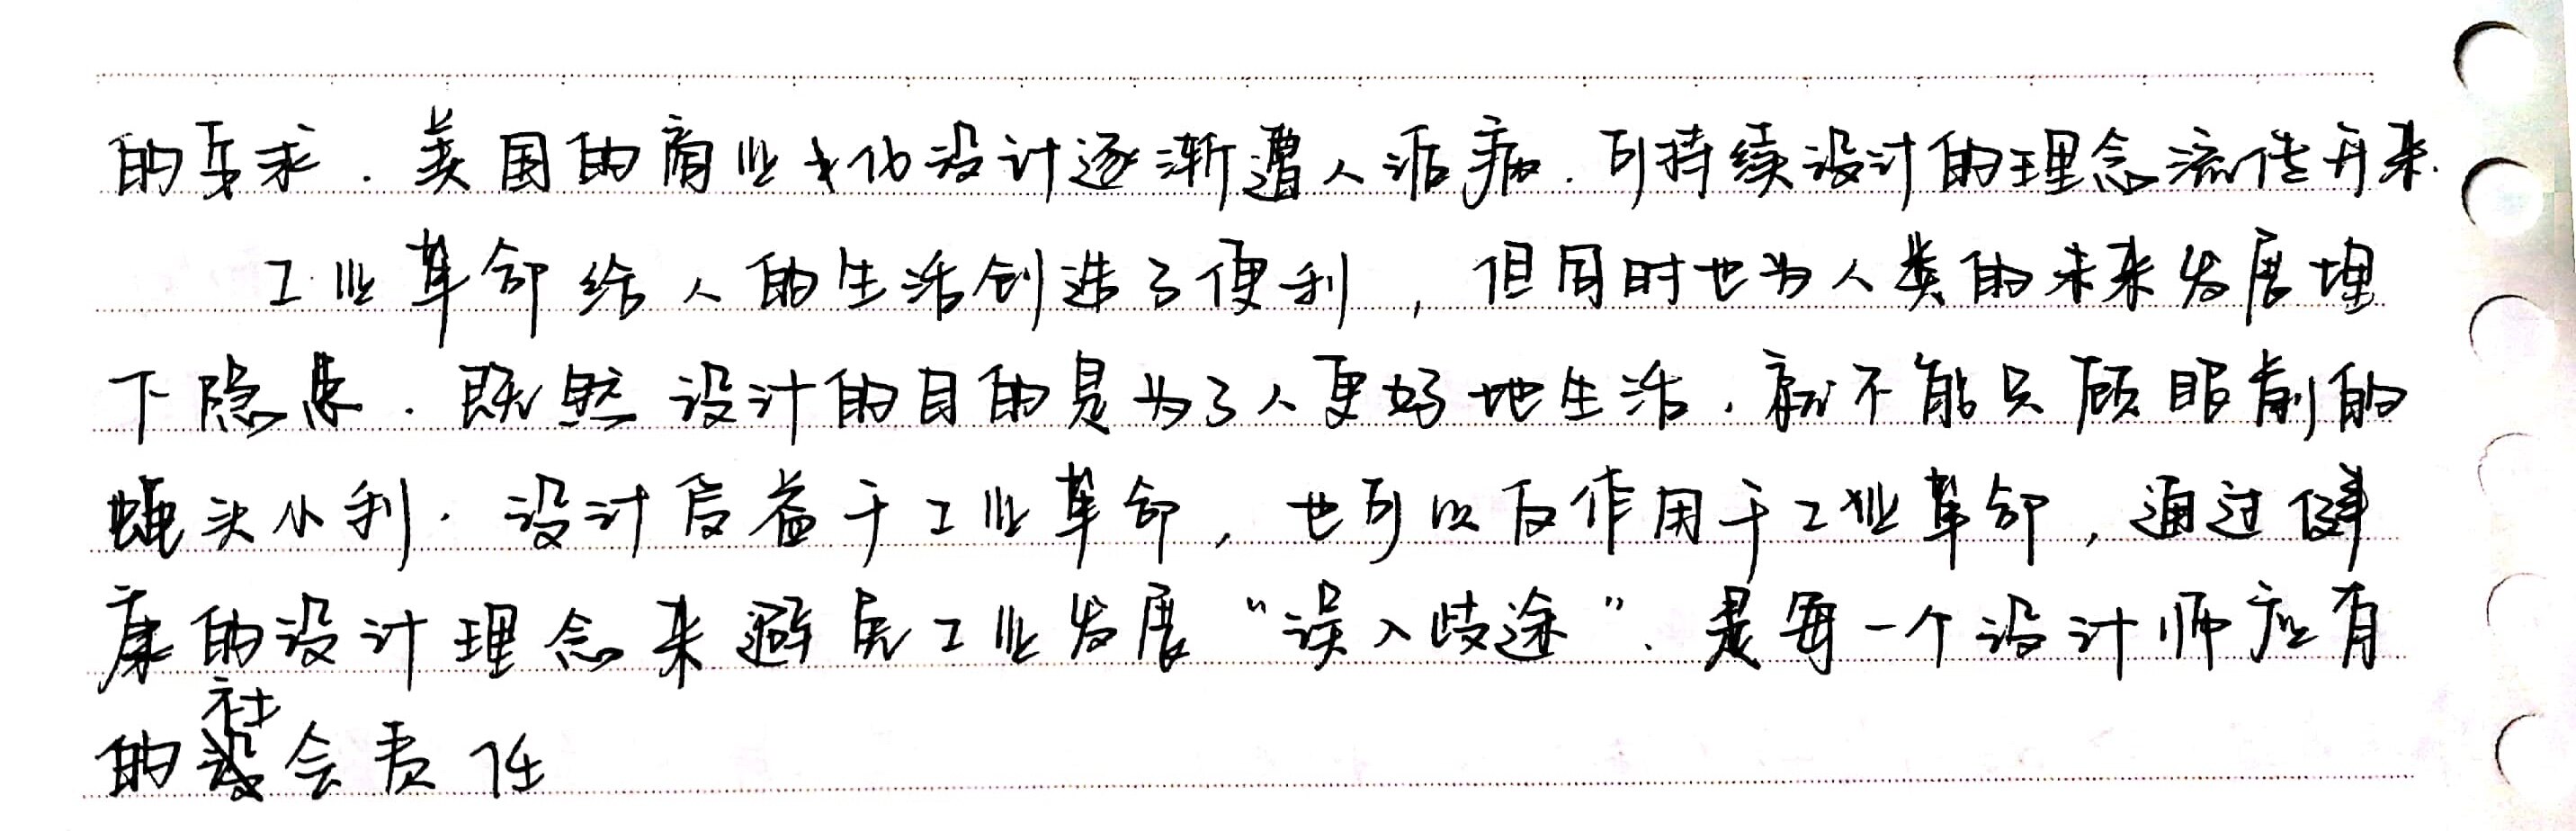 的要求.美国的商业式化设计逐渐遭人诟病.可持续设计的理念流传开来.
工业革命给人的生活创造了便利,但同时也为人类的未来发展埋
下隐患.既然设计的目的是为了人更好地生活,就不能只顾眼前的
蝇头小利.设计受益于工业革命,也可以反作用于工业革命,通过健
康的设计理念来避免工业发展“误入歧途”.是每一个设计师应有
的社会责任